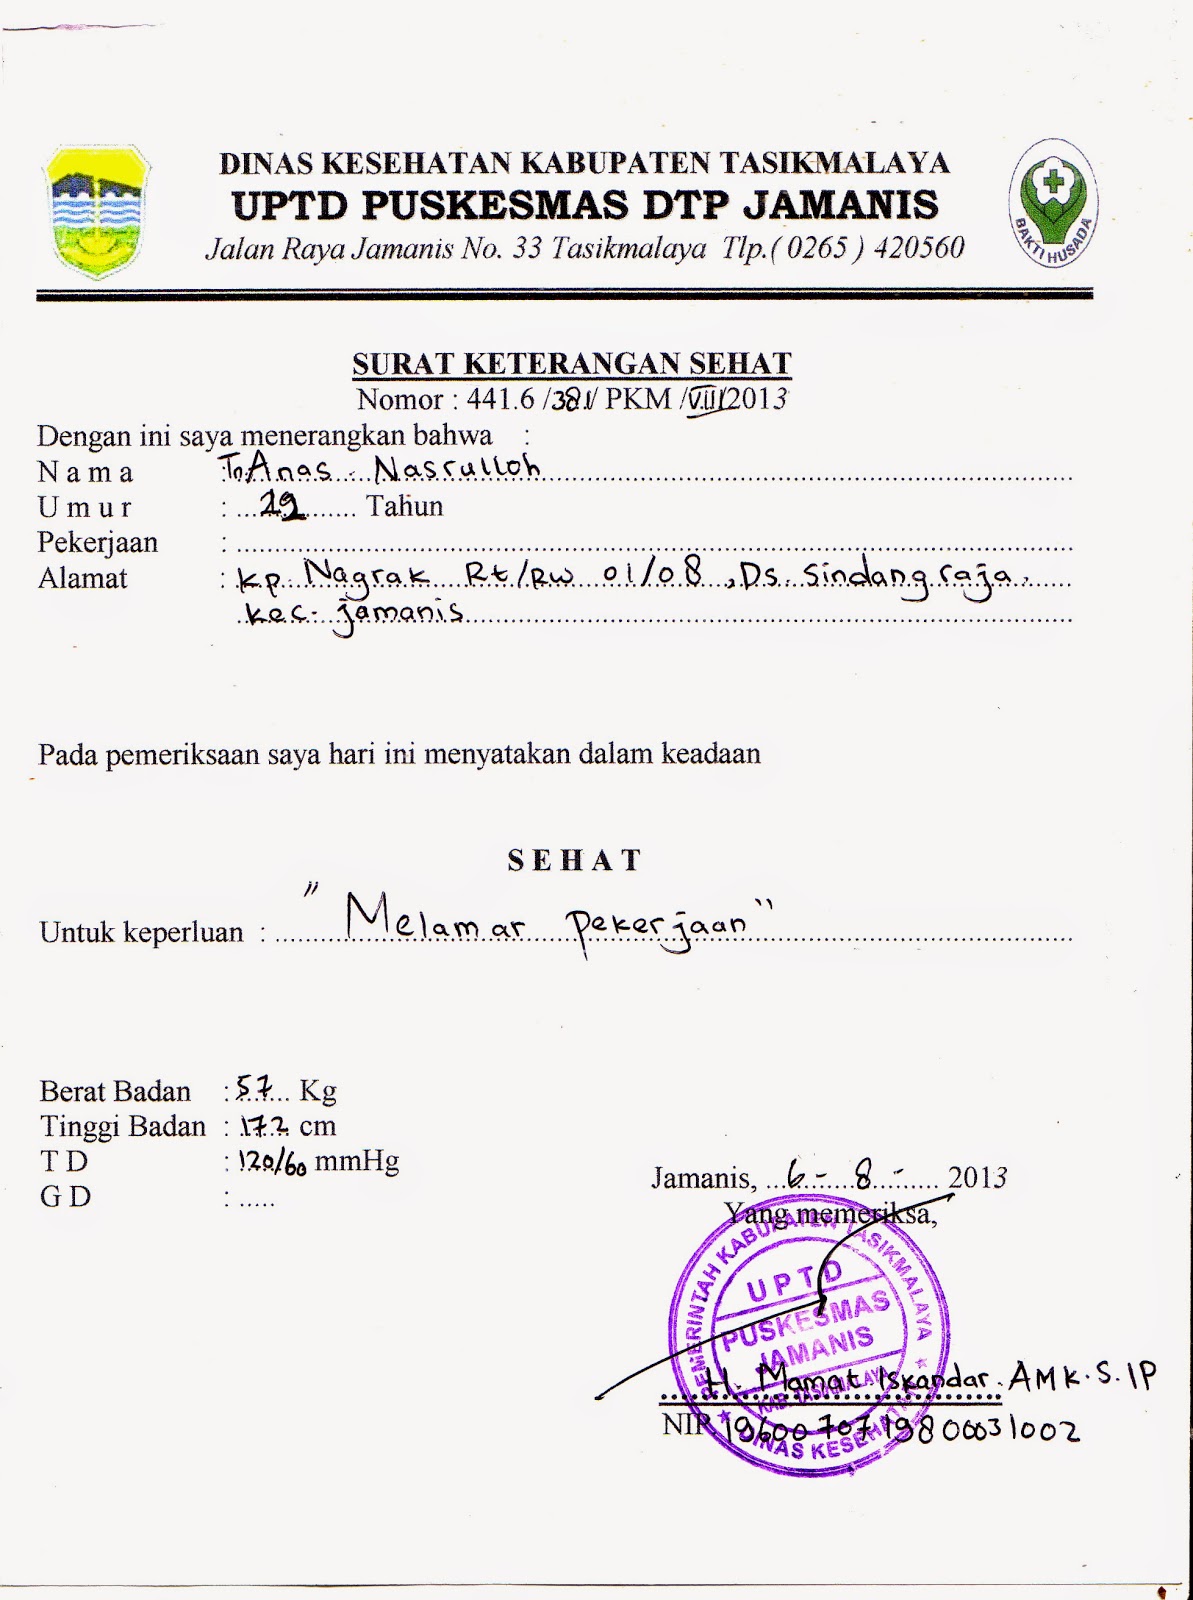 DINAS KESEHATAN KABUPATEN TASIKMALAYA
UPTD PUSKESMAS DTP JAMANIS
Jalan Raya Jamanis No. 33 Tasikmalaya Tlp.( 0265 ) 420560
BAKTI HUSADA
SURAT KETERANGAN SEHAT
Nomor : 441.6 /381/ PKM /VIII/2013
Dengan ini saya menerangkan bahwa :
N a m a : Tn. Anas Nasrulloh
U m u r : ... 29 ... Tahun
Pekerjaan : ...
Alamat : Kp. Nagrak Rt/Rw 01/08, Ds. Sindangraja,
Kec. Jamanis
Pada pemeriksaan saya hari ini menyatakan dalam keadaan
S E H A T
Untuk keperluan : "Melamar pekerjaan"
Berat Badan : 57 Kg
Tinggi Badan : 172 cm
T D : 120/60 mmHg
G D : .....
Jamanis, 6 - 8 - 2013
Yang memeriksa,
PEMERINTAH KABUPATEN TASIKMALAYA
UPTD
PUSKESMAS
JAMANIS
KAB. TASIKMALAYA
DINAS KESEHATAN
H. Mamat Iskandar. AMK. S.IP
NIP.